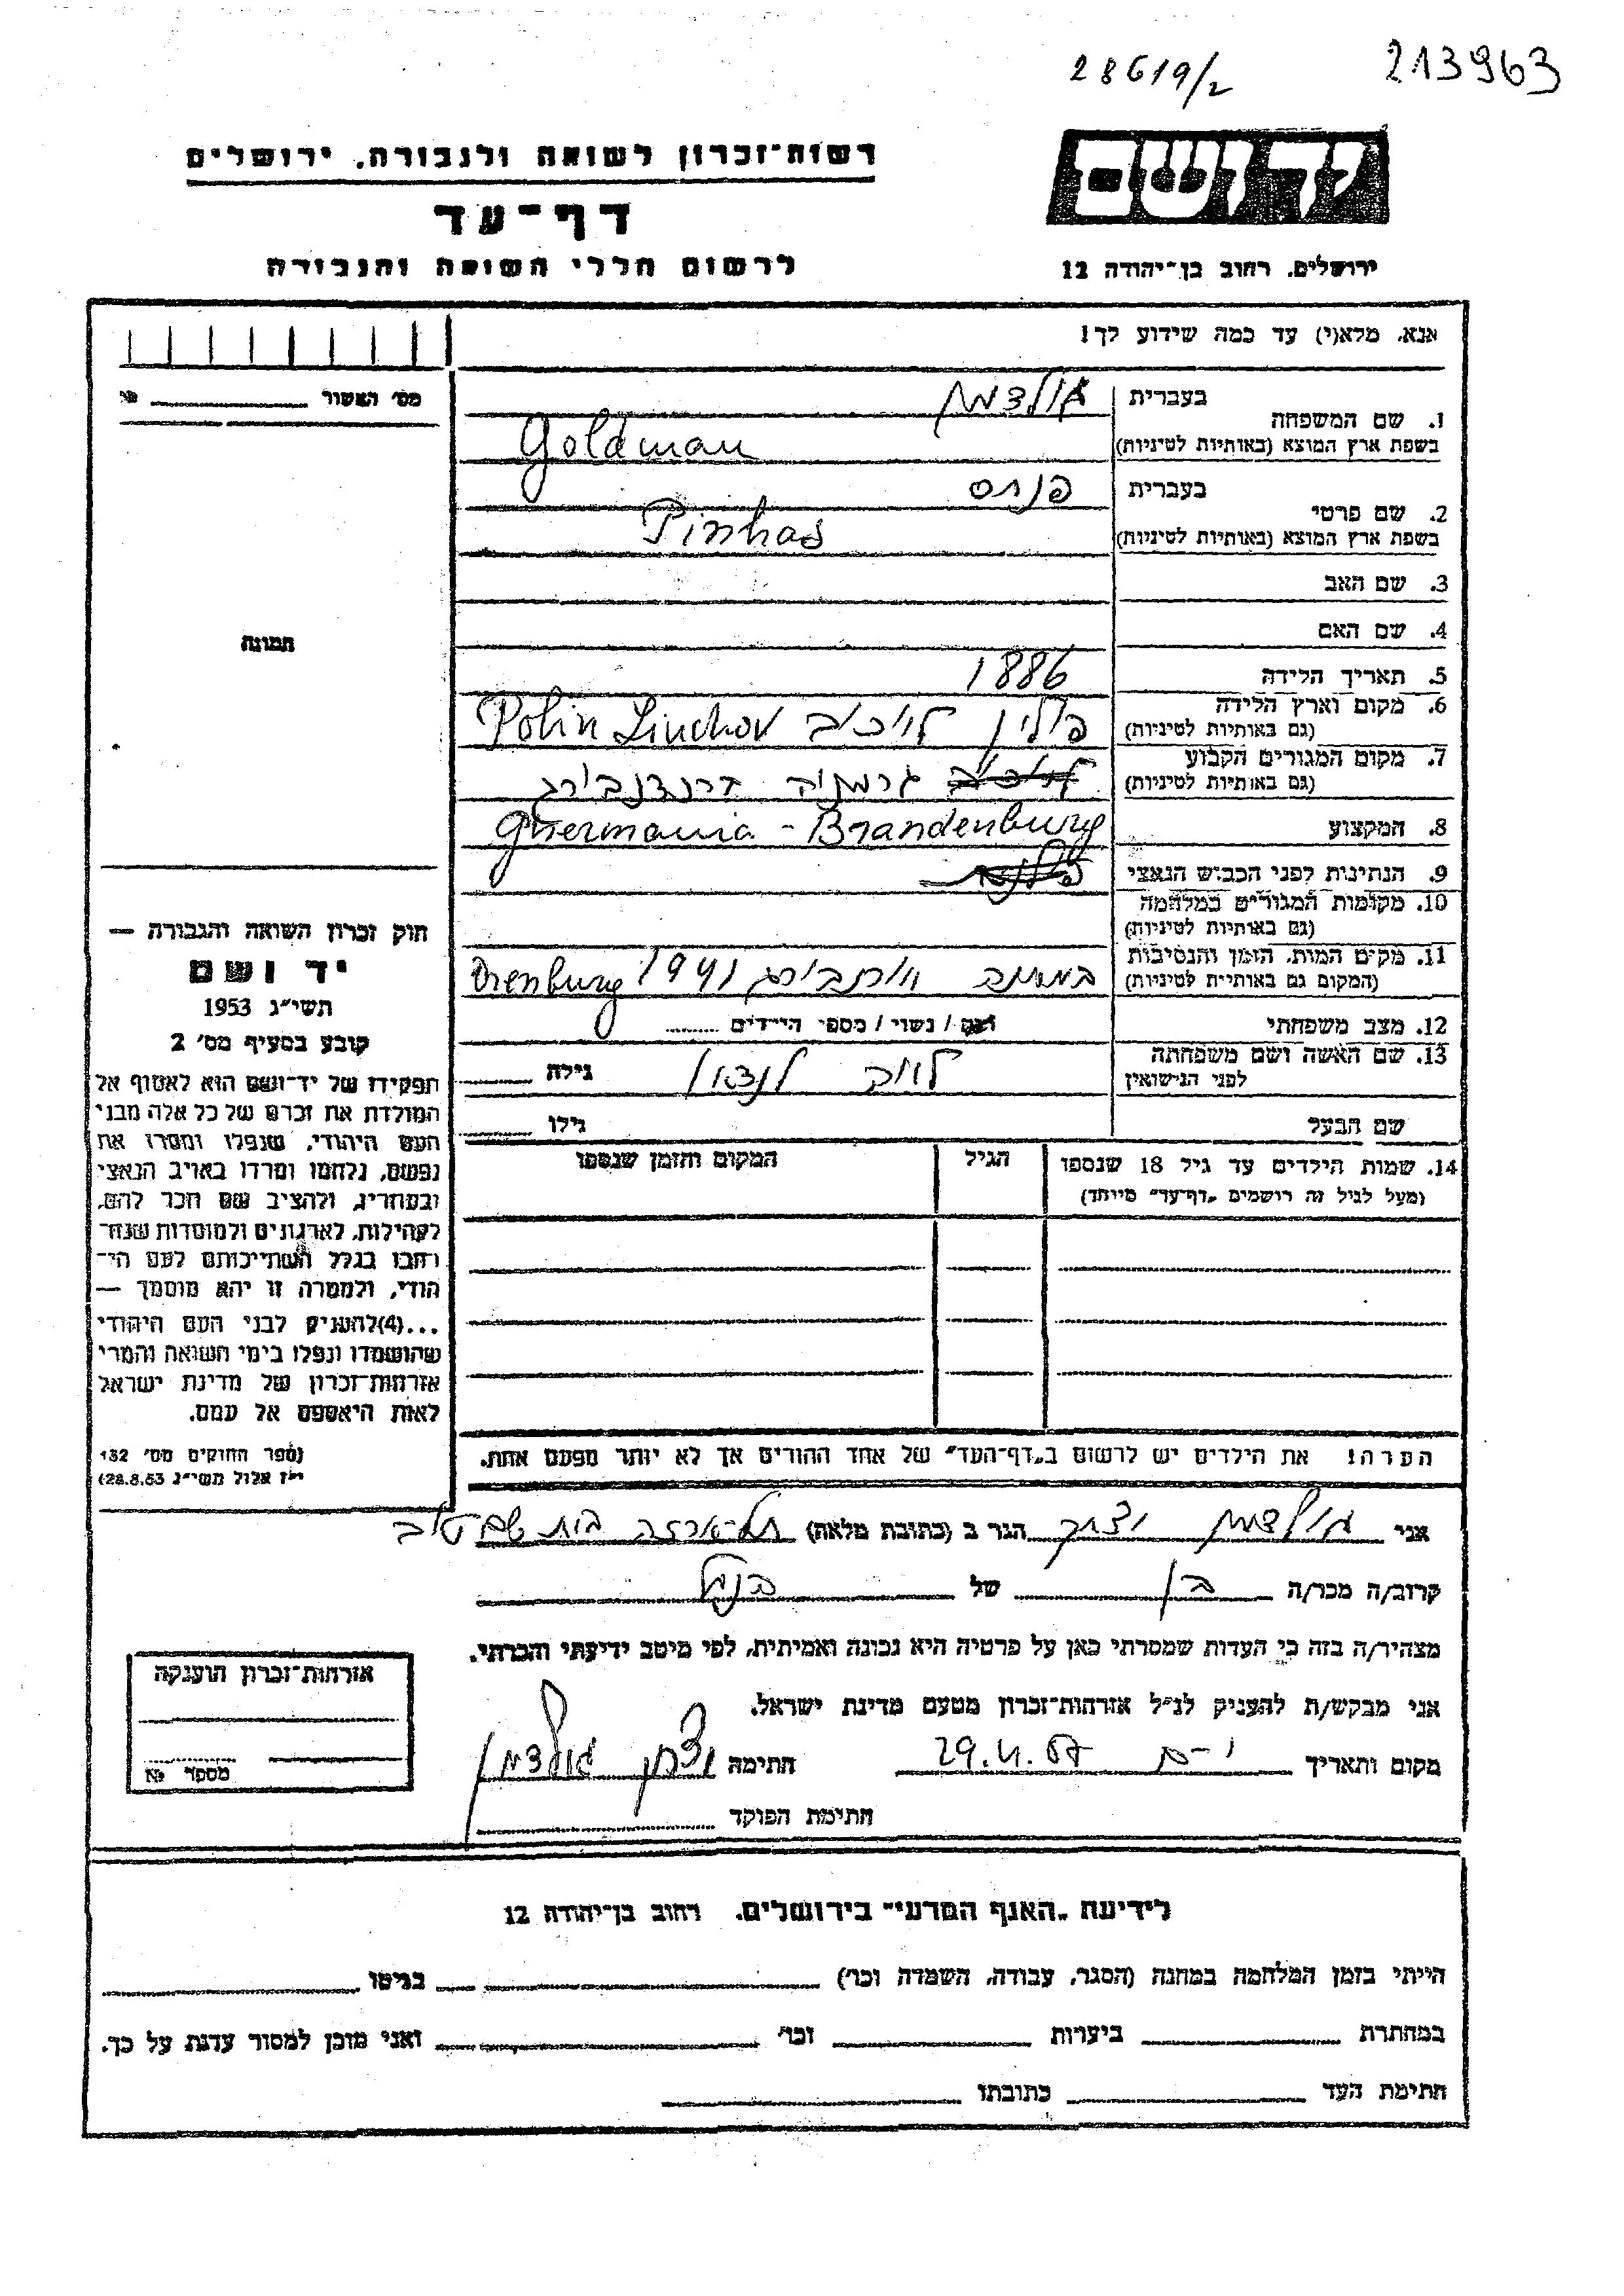 28619/2 213963
יד ושם
רשות־זכרון לשואה ולגבורה, ירושלים
דף־עד
לרשום חללי השואה והגבורה
ירושלים, רחוב בן־יהודה 12
אנא, מלא(י) עד כמה שידוע לך!
מס׳ האשור №
בעברית גולדמן
1. שם המשפחה
בשפת ארץ המוצא (באותיות לטיניות) Goldman
בעברית פנחס
2. שם פרטי
בשפת ארץ המוצא (באותיות לטיניות) Pinhas
3. שם האב
4. שם האם
תמונה
5. תאריך הלידה 1886
6. מקום וארץ הלידה
(גם באותיות לטיניות) פולין Polin Linchov
7. מקום המגורים הקבוע
(גם באותיות לטיניות) גרמניה ברנדנבורג
8. המקצוע Ghermania - Brandenburg
9. הנתינות לפני הכבוש הנאצי
10. מקומות המגורים במלחמה
(גם באותיות לטיניות)
11. מקום המות, הזמן והנסיבות
(המקום גם באותיות לטיניות) במחנה 1941 Orenburg
12. מצב משפחתי רוק / נשוי / מספר הילדים
13. שם האשה ושם משפחתה
לפני הנישואין גילה
שם הבעל גילו
14. שמות הילדים עד גיל 18 שנספו הגיל המקום והזמן שנספו
(מעל לגיל זה רושמים „דף־עד״ מיוחד)
חוק זכרון השואה והגבורה —
יד ושם
תשי״ג 1953
קובע בסעיף מס׳ 2
תפקידו של יד־ושם הוא לאסוף אל
המולדת את זכרם של כל אלה מבני
העם היהודי, שנפלו ומסרו את
נפשם, נלחמו ומרדו באויב הנאצי
ובעוזריו, ולהציב שם וזכר להם,
לקהילות, לארגונים ולמוסדות שנח־
רבו בגלל השתייכותם לעם הי־
הודי, ולמטרה זו יהא מוסמך —
...(4)להעניק לבני העם היהודי
שהושמדו ונפלו בימי השואה והמרי
אזרחות־זכרון של מדינת ישראל
לאות היאספם אל עמם.
(ספר החוקים מס׳ 132
י״ז אלול תשי״ג 28.8.53)
הערה! את הילדים יש לרשום ב„דף־העד״ של אחד ההורים אך לא יותר מפעם אחת.
אני גולדמן יצחק הגר ב (כתובת מלאה) תל־ארזה בית
קרוב/ה מכר/ה בן של הנ״ל
מצהיר/ה בזה כי העדות שמסרתי כאן על פרטיה היא נכונה ואמיתית, לפי מיטב ידיעתי והכרתי.
אני מבקש/ת להעניק לנ״ל אזרחות־זכרון מטעם מדינת ישראל.
מקום ותאריך י־ם חתימה יצחק גולדמן
חתימת הפוקד
אזרחות־זכרון הוענקה
מספר №
לידיעת „האגף המדעי״ בירושלים, רחוב בן־יהודה 12
הייתי בזמן המלחמה במחנה (הסגר, עבודה, השמדה וכו׳) בגיטו
במחתרת ביערות וכו׳ ואני מוכן למסור עדות על כך.
חתימת העד כתובתו